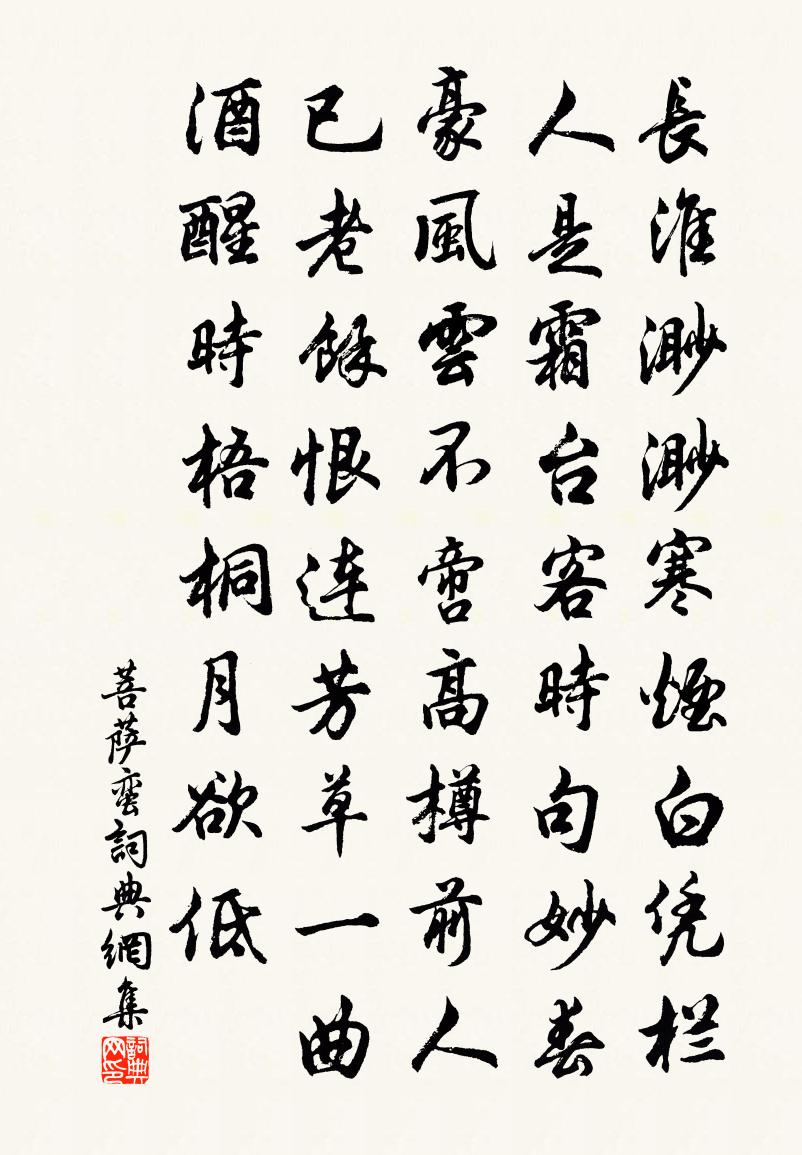 長淮渺渺寒煙白凭栏
人是霜台客時句妙春
豪風雲不啻高樽前人
已老餘恨连芳草一曲
酒醒時梧桐月欲低
菩萨蛮詞典網集
詞典网印